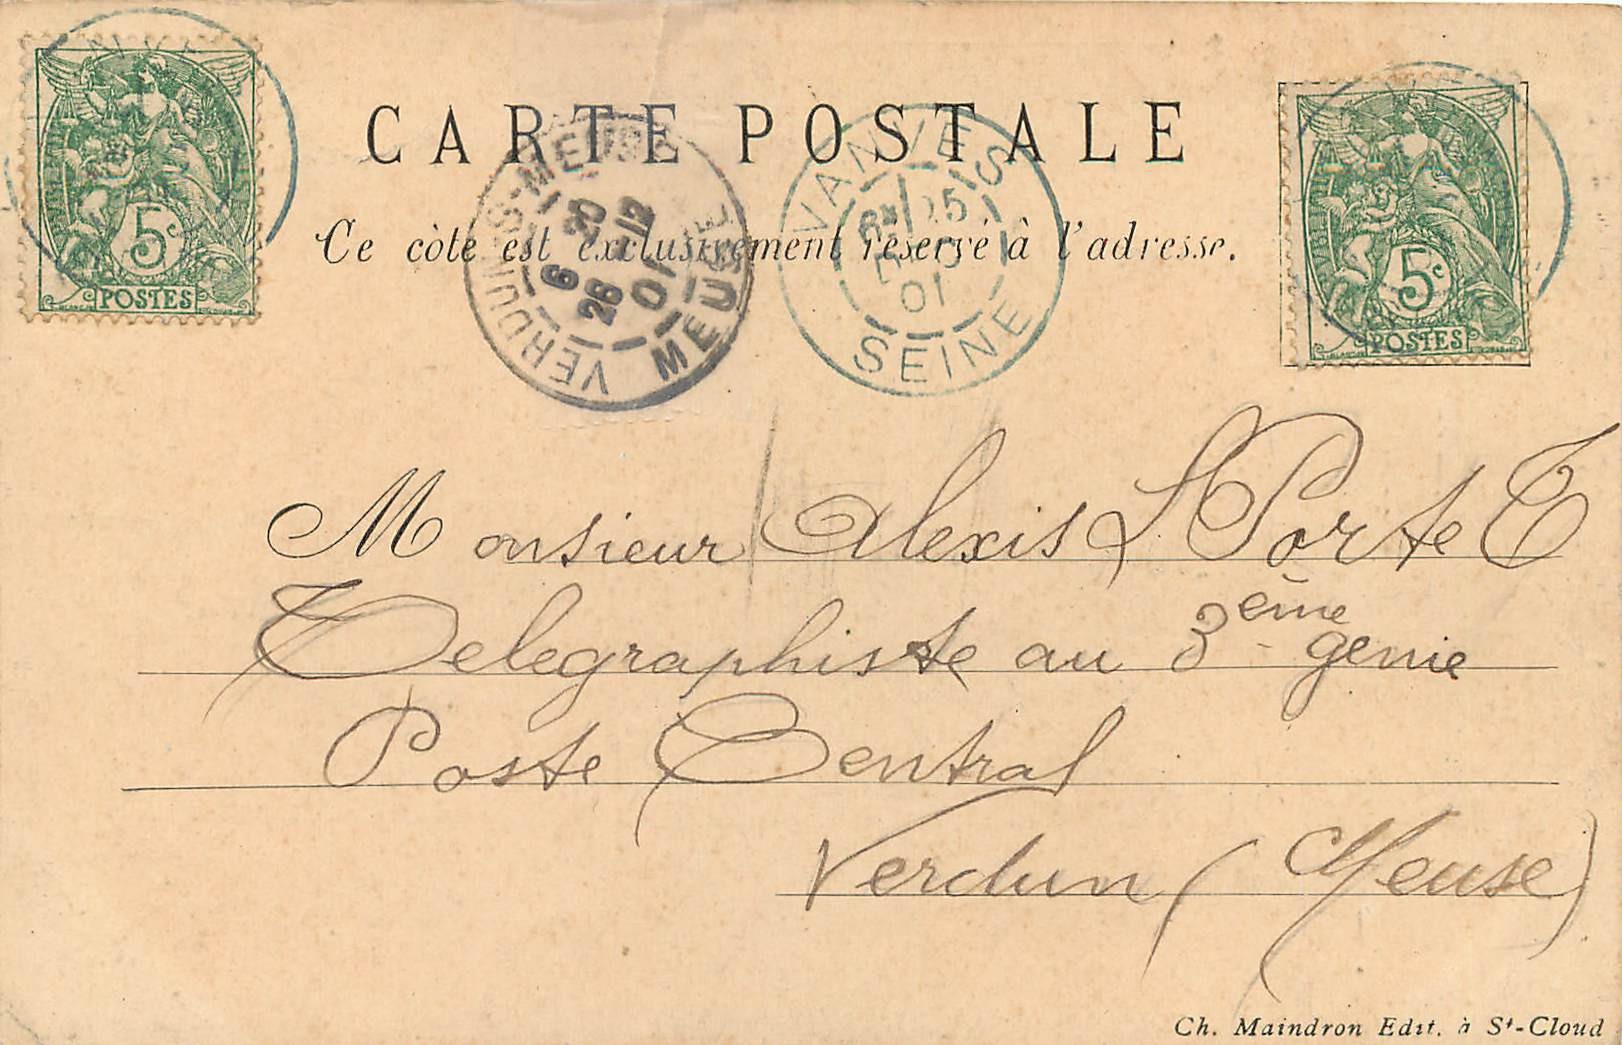 CARTE POSTALE
Ce côté est exclusivement réservé à l'adresse.
VERDUN-S-MEUSE
6 20
26 12
01
MEUSE
VANVES
25
01
SEINE
5c
POSTES
5c
POSTES
Monsieur Alexis Porte
Telegraphiste au 3ème génie
Poste Central
Verdun (Meuse)
Ch. Maindron Edit. à St-Cloud